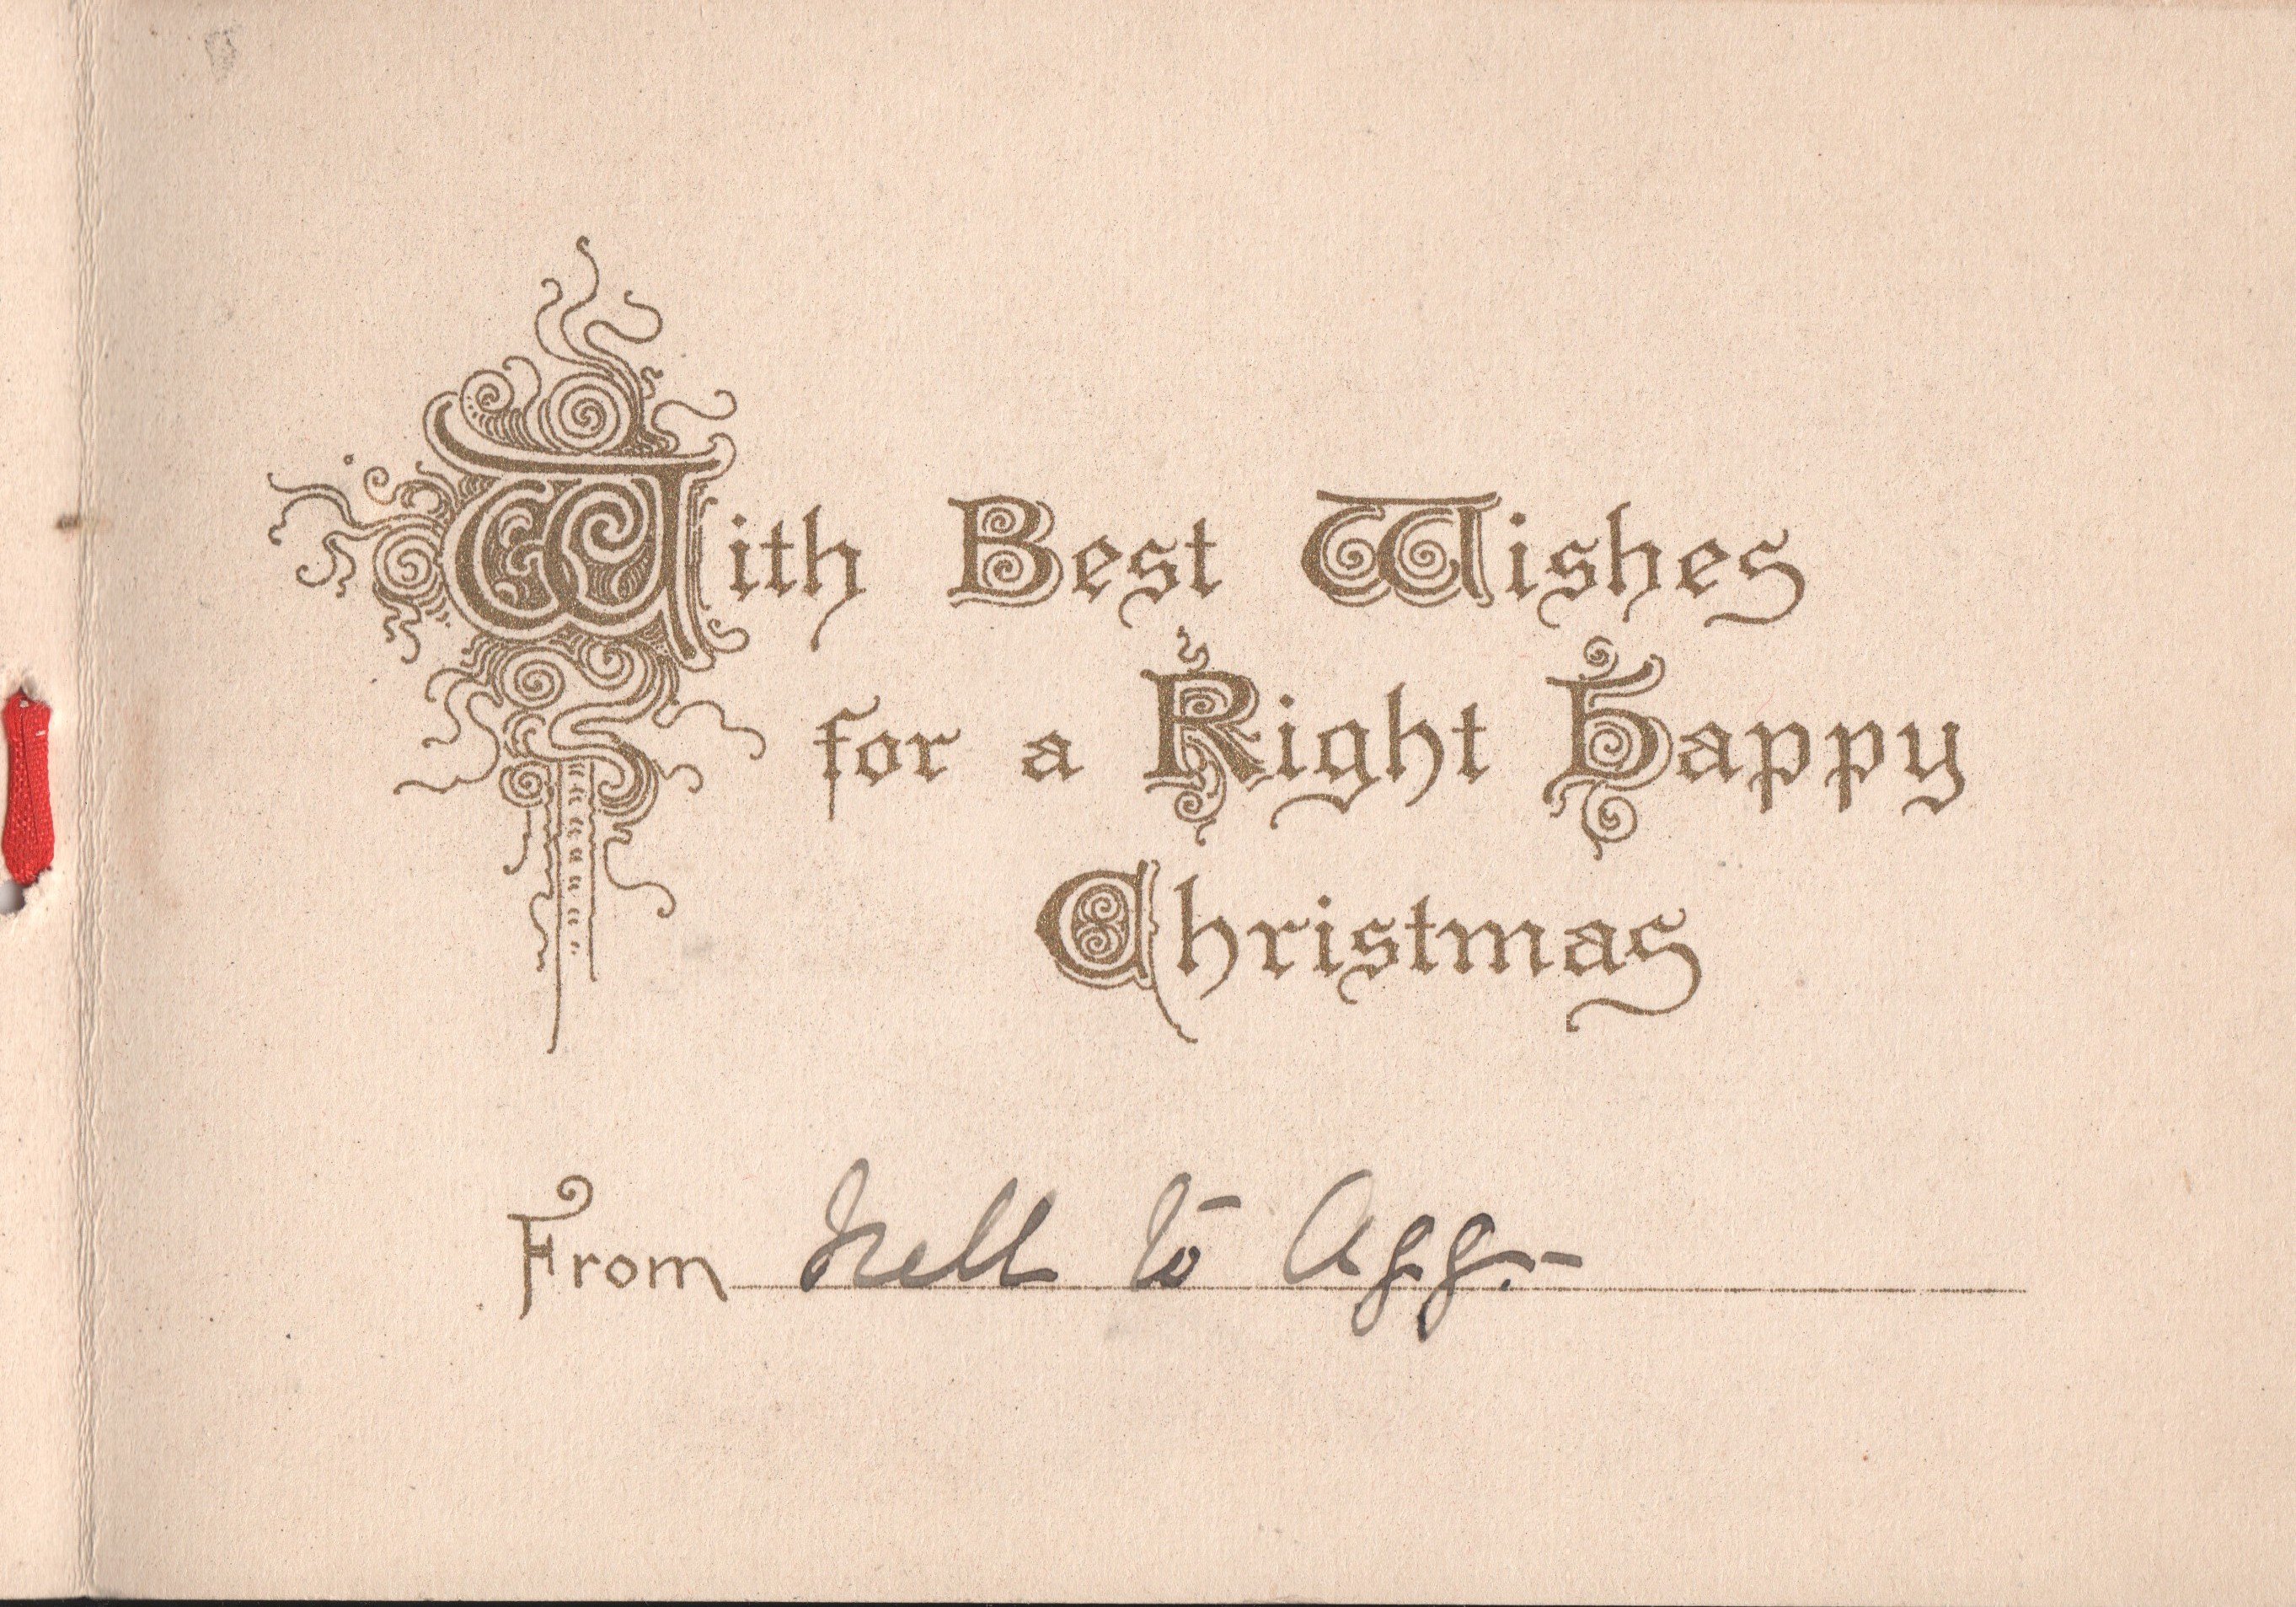 With Best Wishes
for a Right Happy
Christmas
From Nell to Agg.-